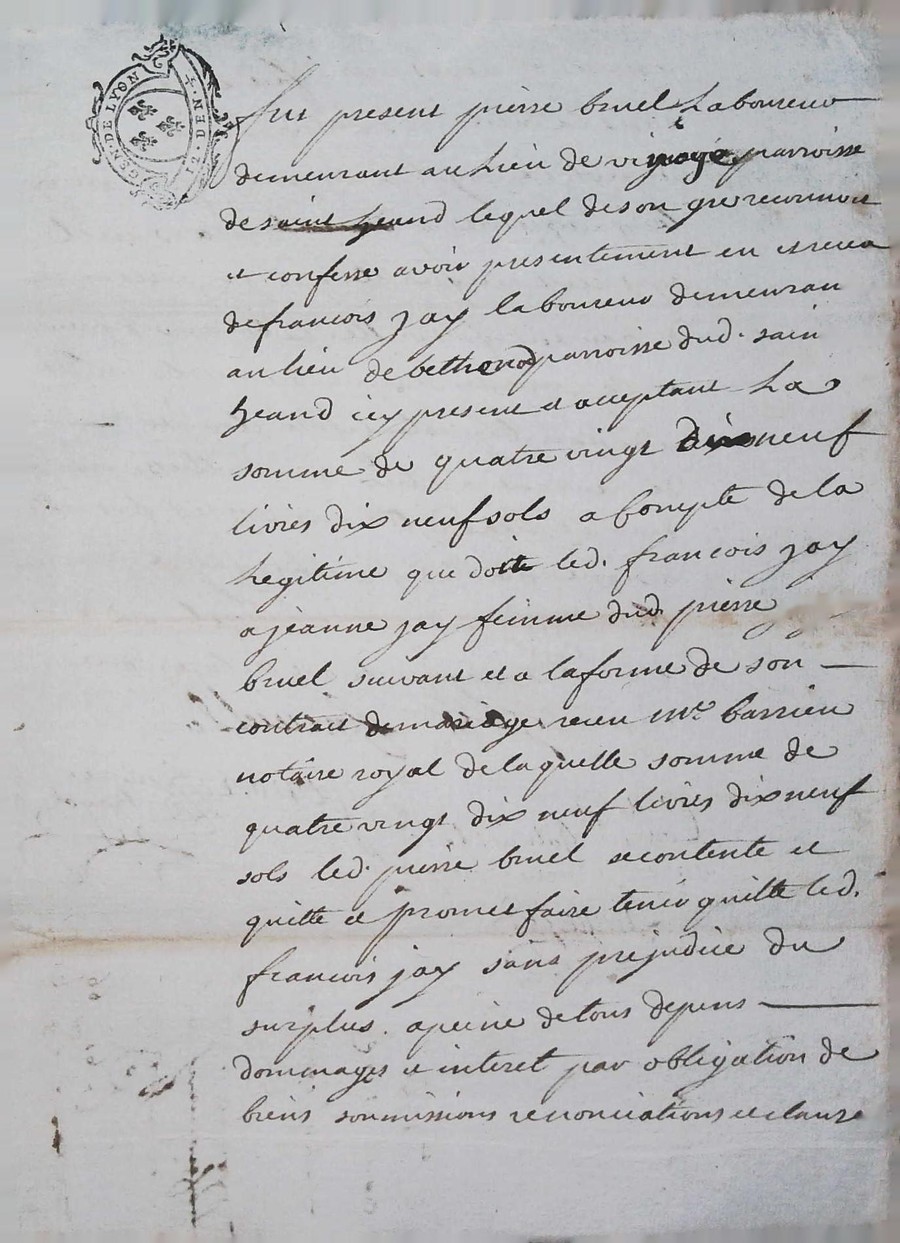 GEN. DE LYON + 2. DEN
Fut present pierre bruel Laboureur
demeurant au Lieu de parroisse
de saint heand lequel de son gre reconnoit
et confesse avoir presentement eu et receu
de francois jay laboureur demeuran
au lieu de bethenod parroisse dud. sain
heand icy present et acceptant La
somme de quatre vingt dix neuf
livres dix neuf sols a Compte de la
Legitime que doit led. francois jay
a jeanne jay femme dud. pierre
bruel suivant et a la forme de son
contrait de mariage receu me. barrieu
notaire royal de laquelle somme de
quatre vingt dix neuf livres dix neuf
sols led. pierre bruel se contente et
quitte et promet faire tenir quitte led.
francois jay sans prejudice du
surplus. a peine de tous depens
dommages et interet par obligation de
biens soumissions renonciations et clause